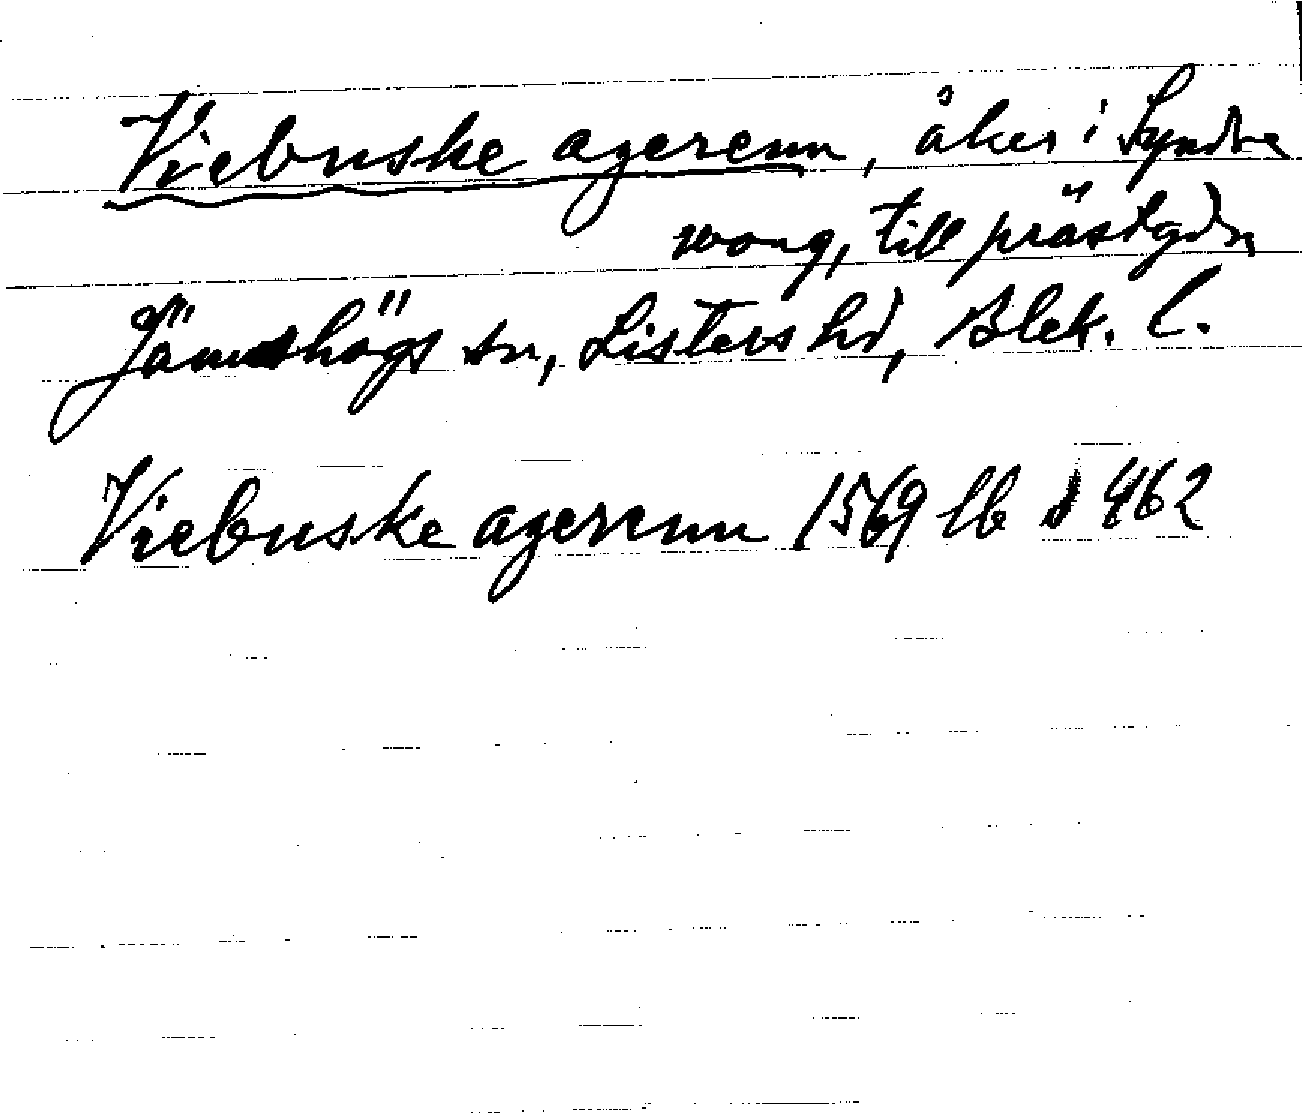 Viebuske agerenn, åker i Syndre
wong, till prästgdn
Jämshögs sn, Listers hd, Blek. l.
Viebuske agerenn 1569 lb s 462